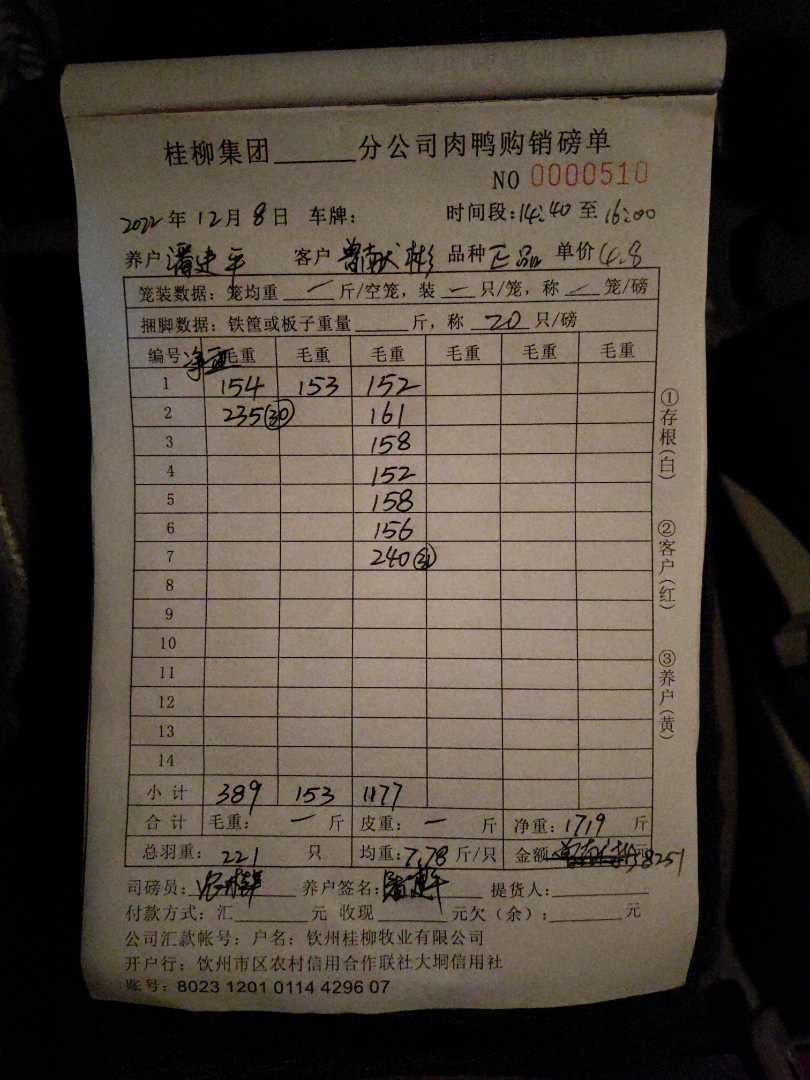 桂柳集团______分公司肉鸭购销磅单
NO 0000510
2022年12月8日 车牌: 时间段:14:40至16:00
养户潘建平 客户曾献彬 品种正品 单价4.8
笼装数据: 笼均重 一 斤/空笼, 装 一 只/笼, 称 一 笼/磅
捆脚数据: 铁筐或板子重量____斤, 称 20 只/磅
编号 净重 毛重 毛重 毛重 毛重 毛重 毛重
1 154 153 152
2 235(30) 161
3 158
4 152
5 158
6 156
7 240
8
9
10
11
12
13
14
小计 389 153 1177
合计 毛重: 一 斤 皮重: 一 斤 净重: 1719 斤
总羽重: 221 只 均重: 7.78 斤/只 金额 8251 元
司磅员: 养户签名: 提货人:
付款方式: 汇______元 收现______元欠(余): ______元
公司汇款帐号: 户名: 钦州桂柳牧业有限公司
开户行: 钦州市区农村信用合作联社大垌信用社
账号: 8023 1201 0114 4296 07
①存根(白)
②客户(红)
③养户(黄)